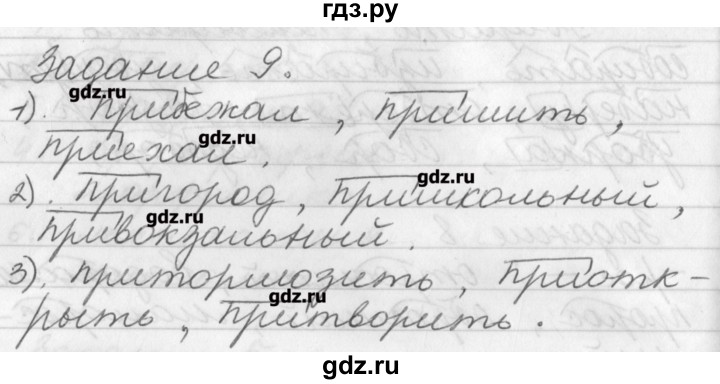 гдз.ру
Задание 9.
gdz.ru
1). прибежал, пришить,
gdz.ru
приехал.
gdz.ru
2). пригород, пришкольный,
gdz.ru
привокзальный.
3). притормозить, приотк-
gdz.ru
рыть, притворить.
gdz.ru